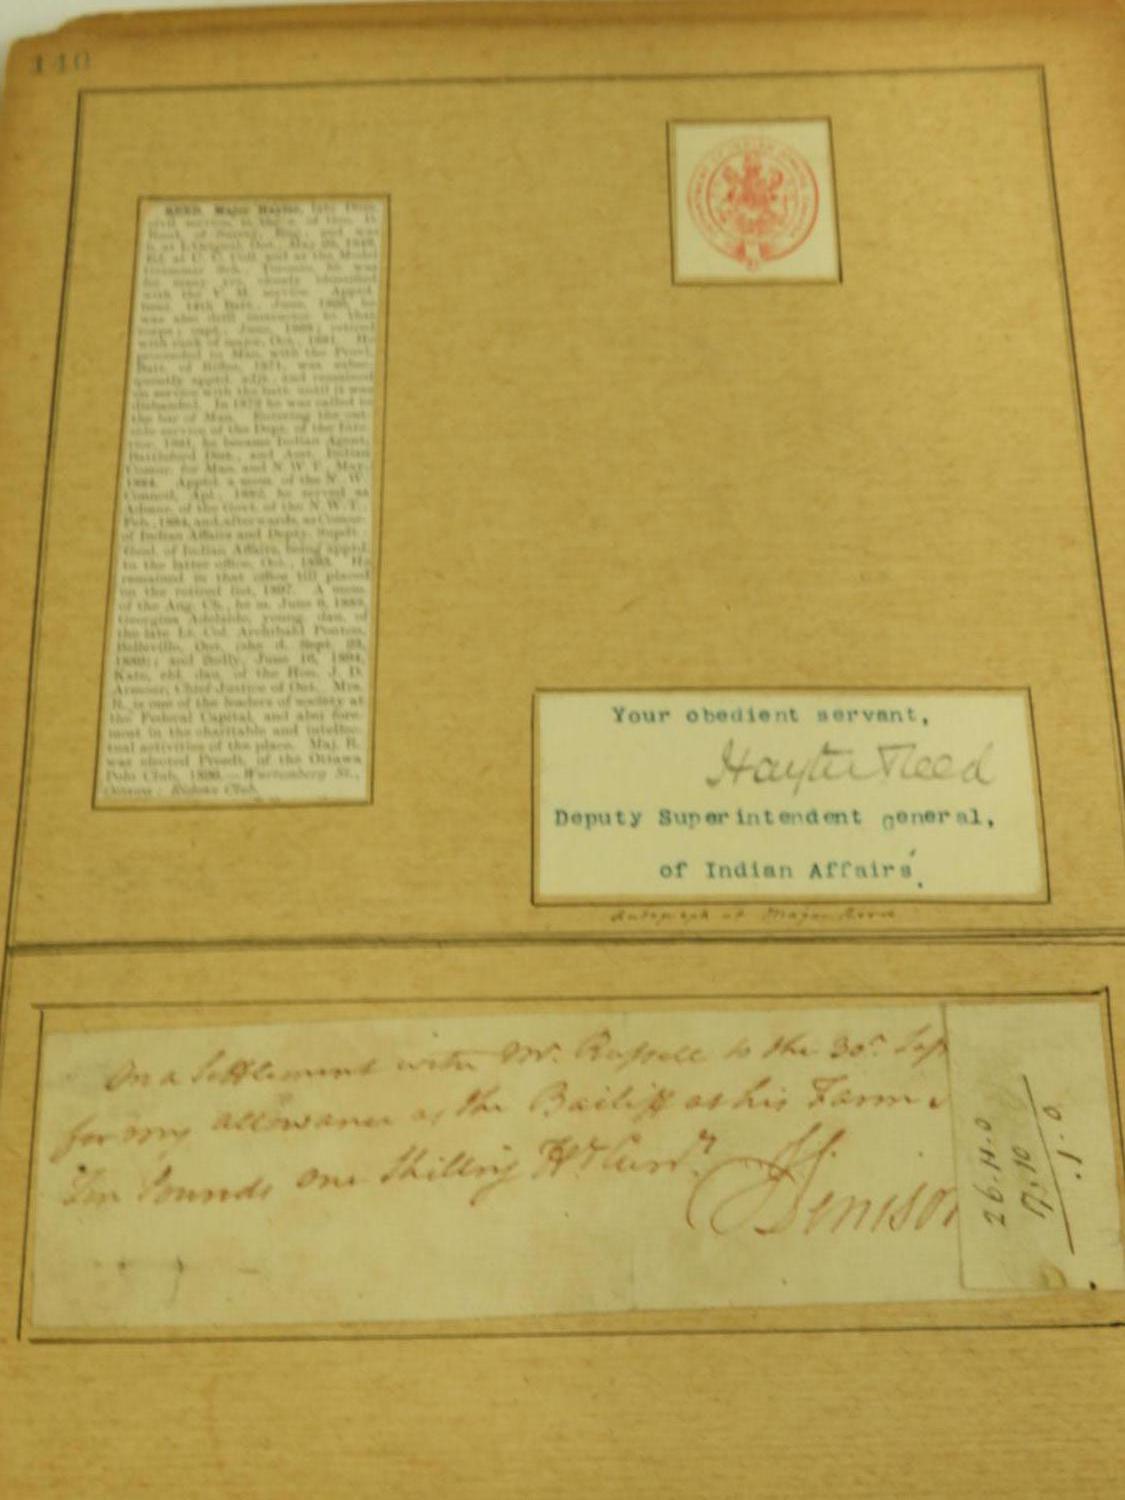 140
REED, Major Hayter, late Dom.
civil service, is the s. of Geo. D.
Reed, of Surrey, Eng., and was
b. at L'Orignal, Ont., May 26, 1849.
Ed. at U. C. Coll. and at the Model
Grammar Sch., Toronto, he was
for many yrs. closely identified
with the V. M. service. Apptd.
lieut. 14th Batt., June, 1866, he
was also drill instructor to that
corps; capt., June, 1869; retired
with rank of major, Oct., 1881. He
proceeded to Man. with the Provl.
Batt. of Rifles, 1871, was subse-
quently apptd. adjt., and remained
on service with the batt. until it was
disbanded. In 1872 he was called to
the bar of Man. Entering the out-
side service of the Dept. of the Inte-
rior, 1881, he became Indian Agent,
Battleford Dist., and Asst. Indian
Comnr. for Man. and N. W. T., May,
1884. Apptd. a mem. of the N. W.
Council, Apl., 1882, he served as
of the Govt. of the N. W. T.,
Feb., 1884, and afterwards, as Comnr.
of Indian Affairs and Depty. Supdt.
Genl. of Indian Affairs, being apptd.
to the latter office, Oct., 1893. He
remained in that office till placed
on the retired list, 1897. A mem.
of the Ang. Ch., he m. June 6, 1888,
Georgina Adelaide, young. dau. of
the late Lt. Col. Archibald Ponton,
Belleville, Ont. (she d. Sept. 23,
1889); and 2ndly, June 16, 1894,
Kate, eld. dau. of the Hon. J. D.
Armour, Chief Justice of Ont. Mrs.
R. is one of the leaders of society at
the Federal Capital, and also fore-
most in the charitable and intellec-
tual activities of the place. Maj. R.
was elected Presdt. of the Ottawa
Polo Club, 1896.—Wurtemberg St.,
Ottawa; Rideau Club.
Your obedient servant,
Hayter Reed
Deputy Superintendent general,
of Indian Affairs.
Autograph of Major Reed
On a Settlement with Mr. Russell to the 30th Sep
for my allowance as the Bailiff at his Farm
Ten Pounds one Shilling Hx Curry
J Denison
26.11.0
.1.0